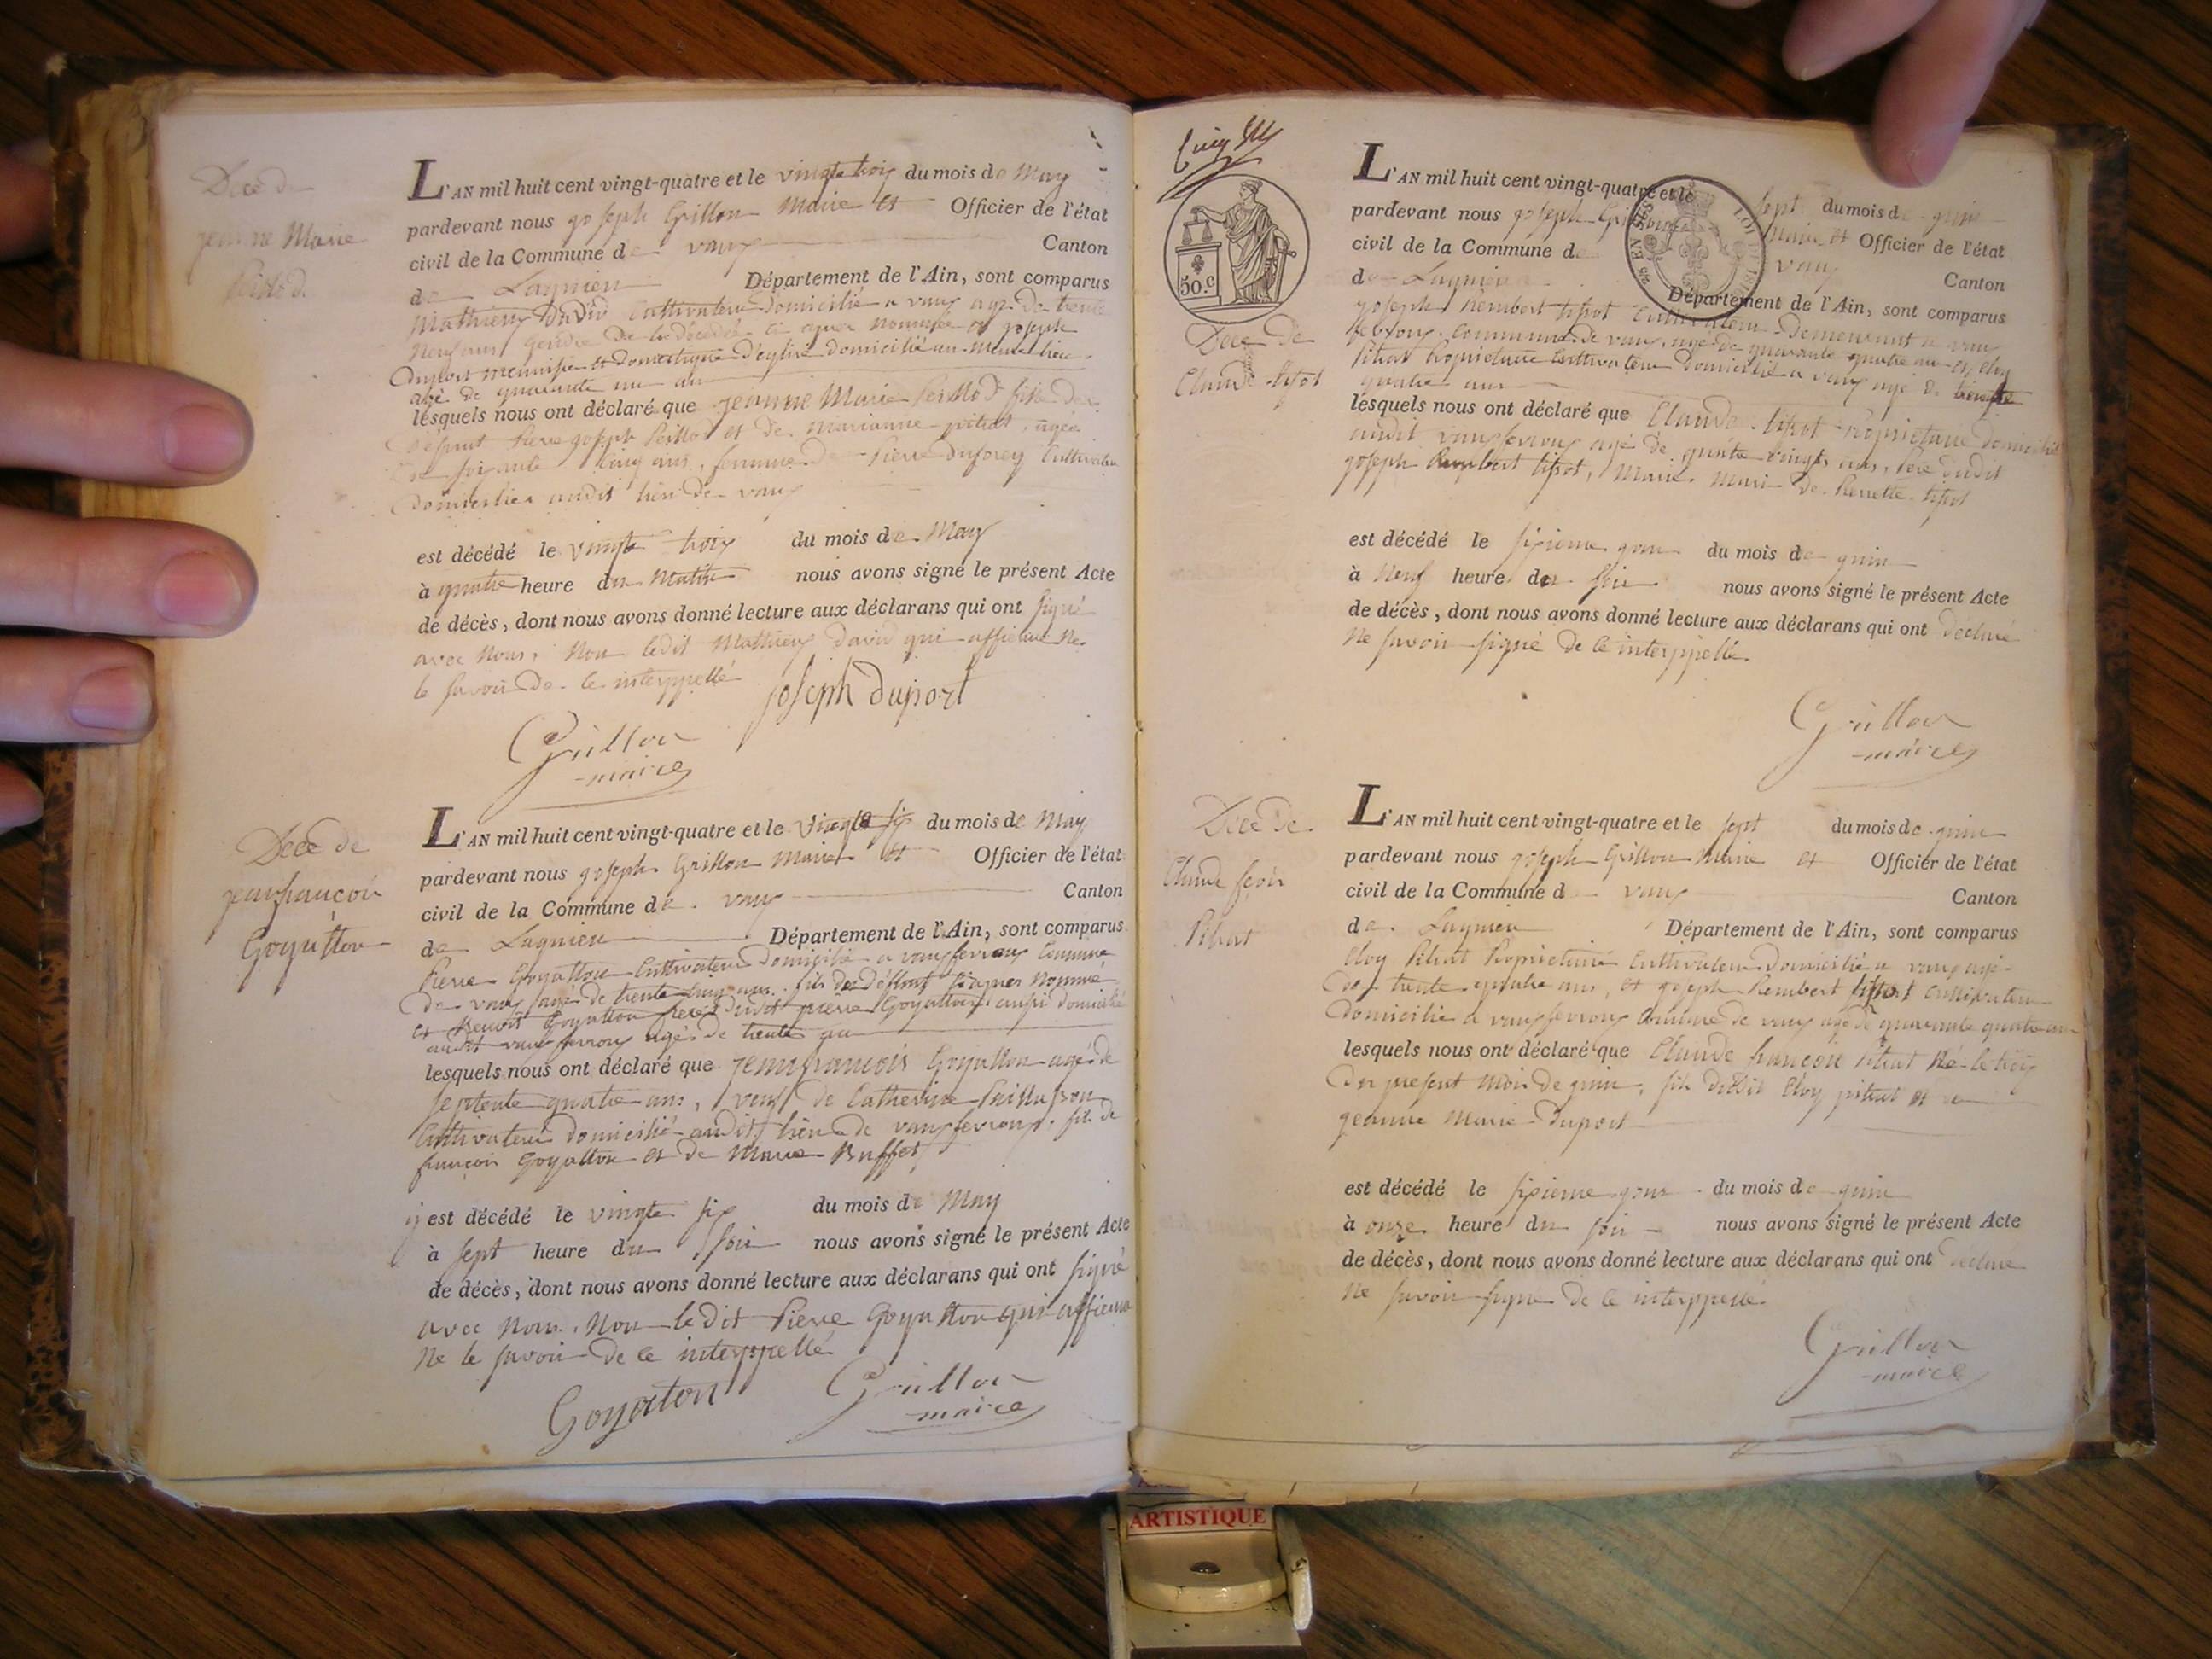 Decè de
jeanne Marie
Perillod.
L'AN mil huit cent vingt-quatre et le vingte troix du mois de May
pardevant nous joseph Grillon Maire et Officier de l'état
civil de la Commune de vaux Canton
de Lagnieu Département de l'Ain, sont comparus
Mathieux David Cultivateur Domicilié a vaux agé De trente
Neuf ans gendre De la décédée ci aprer nommée et joseph
Duport menuisier et Domestique D'eglise domicilié au même lieu
agé de quarante un an
lesquels nous ont déclaré que jeanne Marie fille de
Defunt Pierre joseph et de marianne pittiat, agée
De soixante cinq ans, femme De Pierre Cultivateur
Domiciliée audit lieu de vaux
est décédé le vingte troix du mois de May
à quatre heure du Matin nous avons signé le présent Acte
de décès, dont nous avons donné lecture aux déclarans qui ont signé
avec Nous, Non ledit Mathieux David qui affirme Ne
le savoir De ce interppellé
joseph duport
Grillon
maire
Decè de
jeanfrançois
Goyatton
L'AN mil huit cent vingt-quatre et le vingte six du mois de May
pardevant nous joseph Grillon Maire et Officier de l'état
civil de la Commune de vaux Canton
de Lagnieu Département de l'Ain, sont comparus
Pierre Goyatton Cultivateur Domicilié a vauxfevroux Commune
De vaux agé de trente cinq ans fils de deffunt ci aprer Nommé
et Benoit Goyatton frere Dudit pierre Goyatton aussi domicilié
audit vaux fevroux agé de trente an
lesquels nous ont déclaré que jeanfrancois Goyatton agé de
septente quatre ans, veuf de Catherine
Cultivateur domicilié audit lieu de vauxfevroux, fils de
françois Goyatton et de Marie Buffet
y est décédé le vingte six du mois de May
à sept heure du soir nous avons signé le présent Acte
de décès, dont nous avons donné lecture aux déclarans qui ont signé
avec Nous, Non le dit Pierre Goyatton qui affirme
Ne le savoir De ce interppellé
Goyaton
Grillon
maire
50.c
Decè de
Claude tissot
L'AN mil huit cent vingt-quatre et le sept du mois de juin
pardevant nous joseph Grillon Maire et Officier de l'état
civil de la Commune de vaux Canton
de Lagnieu Département de l'Ain, sont comparus
joseph Rembert tissot Cultivateur Demeurant a vaux
fevroux Commune de vaux, agé de quarante quatre an et eloy
Pitiat Proprietaire Cultivateur Domicilié a vaux agé De trente
quatre ans
lesquels nous ont déclaré que Claude tissot Proprietaire domicilié
audit vauxfevroux agé de quatre vingts ans, Pere dudit
joseph Rembert tissot, Mari De Pierrette tissot
est décédé le sixieme jour du mois de juin
à Neuf heure du soir nous avons signé le présent Acte
de décès, dont nous avons donné lecture aux déclarans qui ont declaré
Ne savoir signé De ce interppellé.
Grillon
maire
Decè de
Claude fçois
Pitiat
L'AN mil huit cent vingt-quatre et le sept du mois de juin
pardevant nous joseph Grillon Maire et Officier de l'état
civil de la Commune de vaux Canton
de Lagnieu Département de l'Ain, sont comparus
Eloy Pitiat Proprietaire Cultivateur Domicilié a vaux agé
De trente quatre ans, et joseph Rembert tissot Cultivateur
Domicilié a vauxfevroux Commune de vaux agé de quarante quatre an
lesquels nous ont déclaré que Claude françois Pitiat Né le troix
Du present Mois de juin, fils dudit Eloy pitiat et de
jeanne Marie Duport
est décédé le sixieme jour du mois de juin
à onze heure du soir nous avons signé le présent Acte
de décès, dont nous avons donné lecture aux déclarans qui ont declaré
Ne savoir signé De ce interppellé
Grillon
maire
ARTISTIQUE